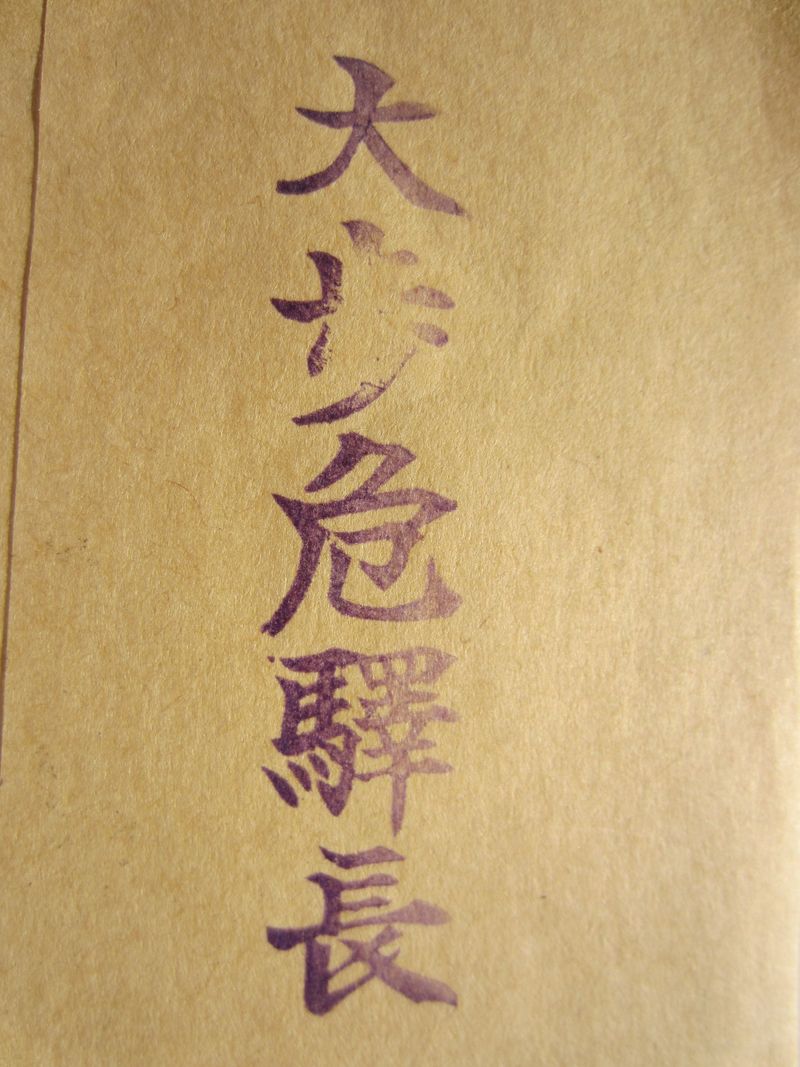 大歩危驛長